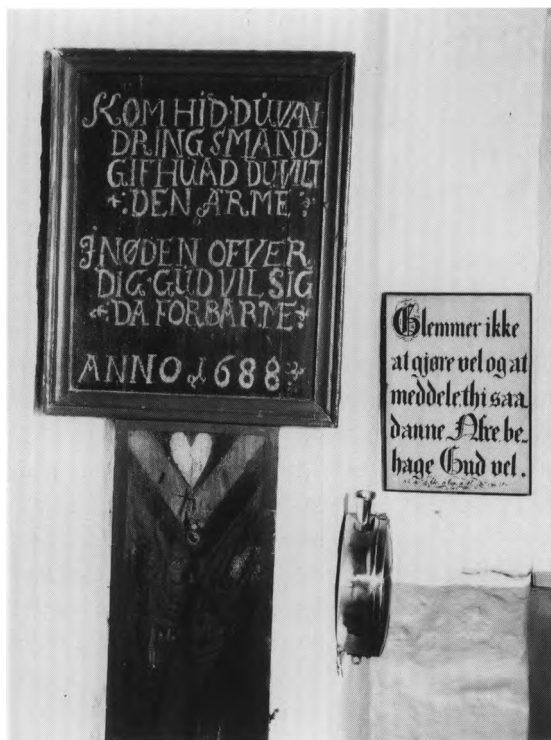 KOM HID DU VAN
DRINGSMAND
GIF HUAD DU VILT
DEN ARME
I NØDEN OFVER
DIG GUD VIL SIG
DA FORBARTE
ANNO 1688
Glemmer ikke
at gjøre vel og at
meddele thi saa
danne Ofre be-
hage Gud vel.